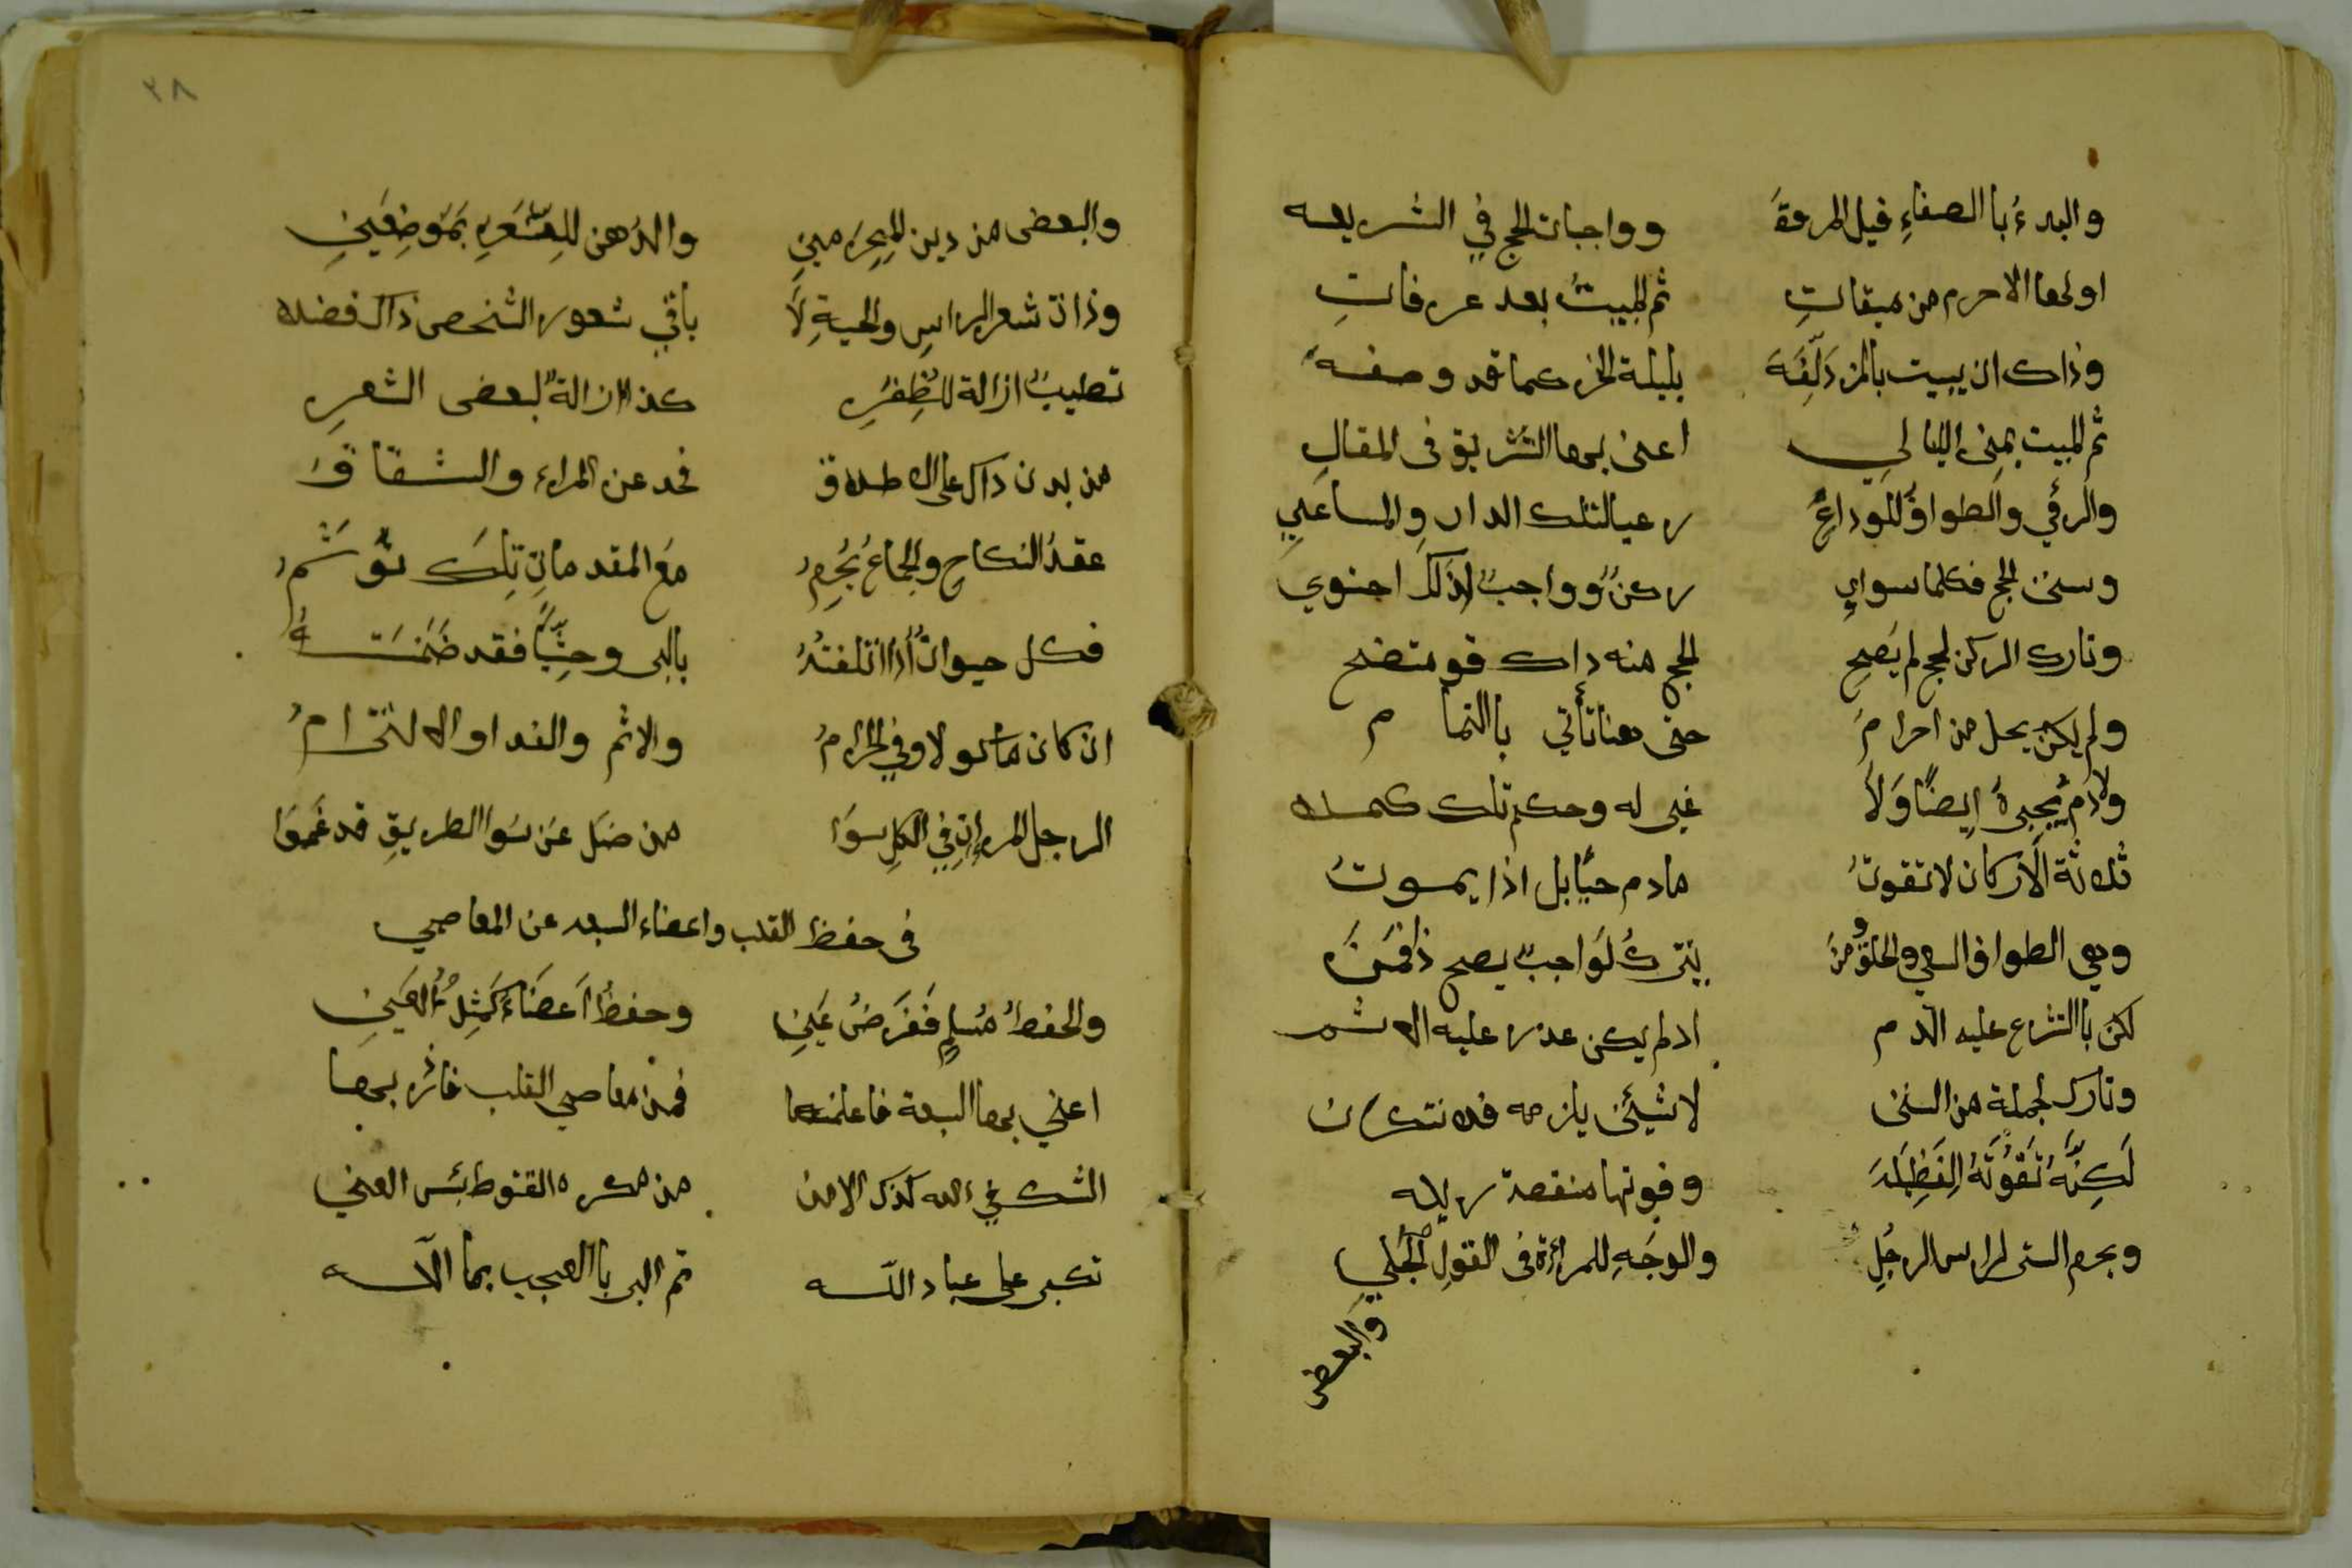 والبدءُ با الصفاءِ قبل المروة ووا جبات الحج في الشريعه
اولها الاحرم من ميقاتِ ثم المبيتُ بعد عرفاتِ
وذاك ان يبيت بالمزدَلِّفَة بليلة النحر كما قد وصفه
ثم المبيت بمِنىٰ الليالي اعنى بها التشريق فى المقالِ
والرمي والطوافُ للوداعِ رعيا لتلك الدار والمساعيِ
وسنن الحج فكلما سواي ركنٌ وواجبٌ لذلك احتوي
وتارك الركن لحج لم يَصِح الحج منه ذاك قو متضح
ولم يكن يحل من احرامَ حتى هنا تأتي باالتما م
ولادم يُجبرهُ ايضًا وَلاَ غير له وحكم تلك كملا
ثلاثة الاركان لاتفوتُ مادم حيًّا بل اذا يموتُ
وهي الطواف السعي والحلقُ ومن يَترك لَواجبٍ يصح ذا فمَن
لكن باالشرع عليه الدم اذ لم يكن عذر عليه الاثم
وتارك لجملة من السنن لاشيئن يلزمه فلا تنكرن
لَكِنَّهُ تَفُوتَهُ الفَضِيلَة وفوتها منقصة رزيله
ويحرم الستر لراس الرجُلِ والوجَهِ للمراءة فى القولِ الجَلي
والبعض
٢٨
والبعض من دين للمِحرَمينِ والدُهن للِشَعَرِ بمَوضِعَينِ
وذان شعر الراسِ والحيةِ لَا باقي شعور الشخص ذاك فضلا
تطيبٌ ازالة للظِفُرِ كذا ازالةٌ لبعض الشعرِ
من بدن ذاك على الاطلاق فحد عن المراء والشقاق
عقدُ النكاح والجماعُ يُحرِمُ مَعَ المقدماتِ تِلكَ
فكل حيوانٌ اذا اتلفتهُ بالبرى وحشِيًّا فقد ضَمَنتَهُ
ان كان ماكولا وفي الحرامُ والاثم والفدا والالتزامُ
الرجل المراءةِ في الكلِ سوَا من ضَل عَن سَوا الطريقِ قد غَموَا
فى حفظ القلب واعضاء السبعه عن المعاصي
والحفظُ مُسلمٍ فَفَرَضُ عَينِ وحفظُ اعَضَاءُ كَمثِلُ العَينِ
اعني بها السبعة فاعلمنها فمن معاصي القلب فائزه بها
الشك في الله كذلك الامن من مكره القنوط بئس العني
تكبر على عباد اللّه ثم البر باالعجب بما الآله